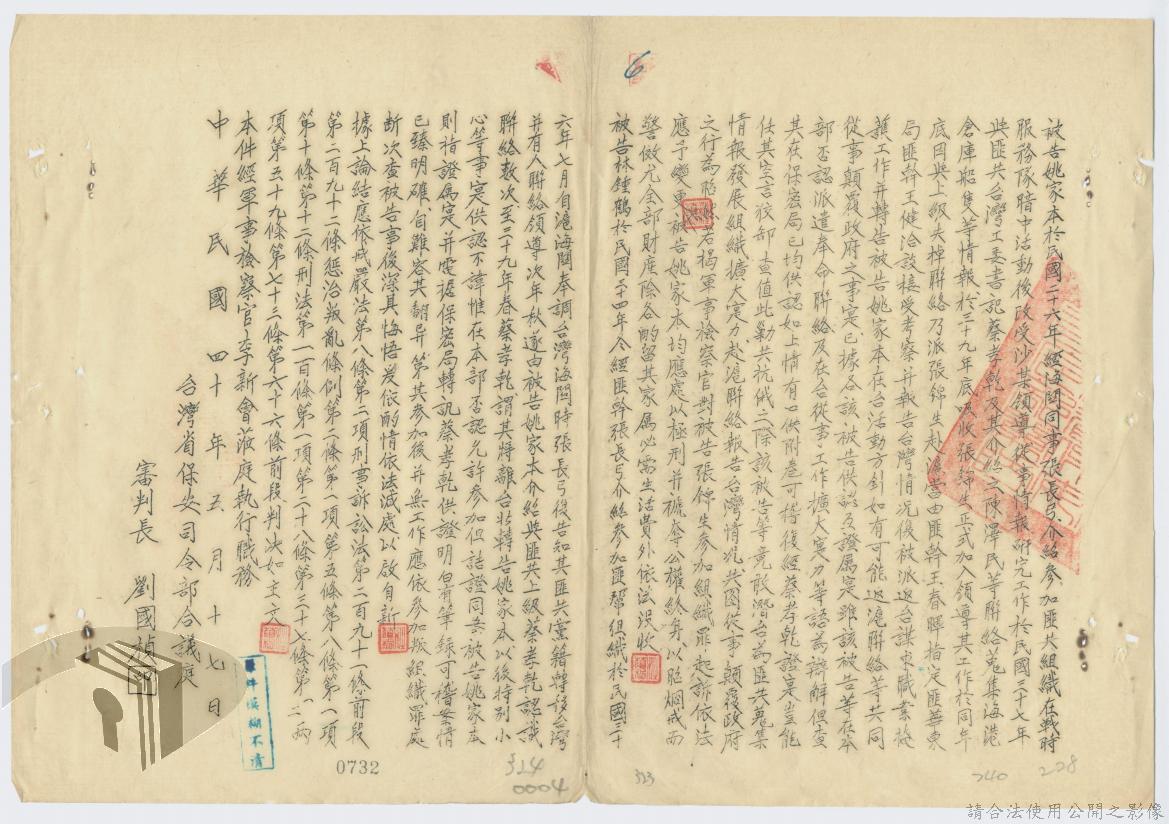 6
被告姚家本於民國二十六年經海關同事張長弓介紹參加匪共組織在戰時
服務隊暗中活動後改受沙某領導從事情報研究工作於民國三十七年
與匪共台灣工委書記蔡孝乾及其介紹之陳澤民等聯絡蒐集海港
倉庫船隻等情報於三十九年底吸收張錦生正式加入領導其工作於同年
底因與上級失掉聯絡乃派張錦生赴滬當由匪幹王春暉指定匪華東
局匪幹王健洽談接受考察并報告台灣情況後被派返台謀求職業掩
護工作并轉告被告姚家本在台活動方針如有可能返滬聯絡等共同
從事顛覆政府之事實已據各該被告供認及證屬實雖該被告等在本
部否認派遣奉命聯絡及在台從事工作擴大實力等語為辯解但查
其在保密局已均供認如上情有口供附卷可稽復經蔡孝乾證實豈能
任其空言狡卸查值此勦共抗俄之際該被告等竟敢潛台為匪共蒐集
情報發展組織擴大實力赴滬聯絡報告台灣情況共圖從事顛覆政府
之行為昭然若揭軍事檢察官對被告張錦生參加組織罪起訴依法
應予變更被告姚家本均應處以極刑并褫奪公權終身以昭烱戒而
警傚尤全部財產除各酌留其家屬必需生活費外依法沒收
被告林鍾鶴於民國三十四年冬經匪幹張長弓介紹參加匪幫組織於民國三十
六年七月自滬海關奉調台灣海關時張長弓復告知其匪共黨籍轉移台灣
并有人聯絡領導次年秋遂由被告姚家本介紹與匪共上級蔡孝乾認識
聯絡數次至三十九年春蔡孝乾謂其將離台北轉告姚家本以後特別小
心等事實供認不諱惟在本部否認允許參加但詰證同案被告姚家本
則指證屬實并電據保密局轉訊蔡孝乾供證明白有筆錄可稽案情
已臻明確自難容其翻異第其參加後并無工作應依參加叛組織罪處
斷次查被告事後深具悔悟爰依酌情依法減處以啟自新
據上論結應依戒嚴法第八條第二項刑事訴訟法第二百九十一條前段
第二百九十二條懲治叛亂條例第二條第一項第五條第八條第一項
第十條第十二條刑法第一百條第一項第二十八條第三十七條第一二兩
項第五十九條第七十三條第六十六條前段判決如主文
本件經軍事檢察官李新會蒞庭執行職務
中華民國四十年五月十七日
台灣省保安司令部合議庭
審判長 劉國楨
原件模糊不清
0732
324
0004
323
240
228
請合法使用公開之影像